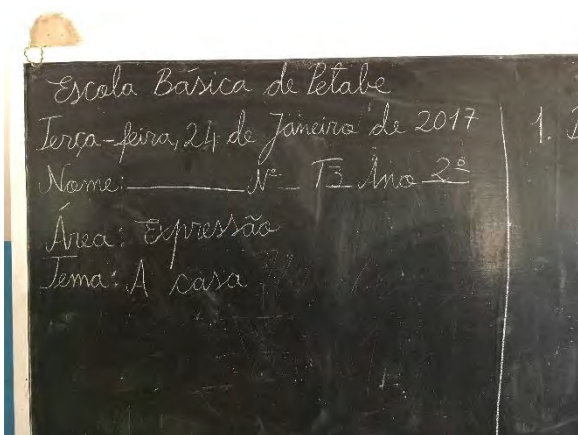 Escola Básica de Petabe
Terça-feira, 24 de Janeiro de 2017
Nome: ________ Nº __ T3 Ano 2º
Área: Expressão
Tema: A casa
1.